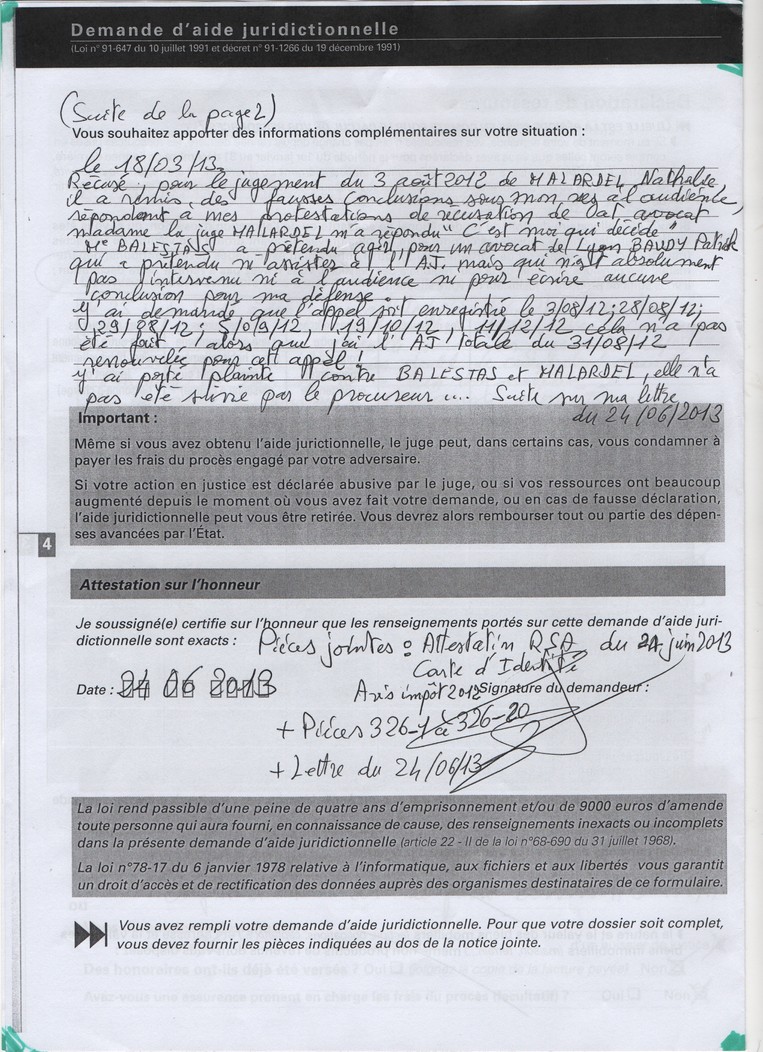 Demande d'aide juridictionnelle
(Loi n° 91-647 du 10 juillet 1991 et décret n° 91-1266 du 19 décembre 1991)
(Suite de la page 2)
Vous souhaitez apporter des informations complémentaires sur votre situation :
le 18/03/13.
Récusé, pour le jugement du 3 août 2012 de MALARDEL Nathalie,
il a remis, des fausses conclusions sous mon nez à l'audience,
répondant à mes protestations de récusation de cet avocat
madame la juge MALARDEL m'a répondu "C'est moi qui décide"
Me BALESTAS a prétendu agir pour un avocat de Lyon BAUDY Patrick
qui a prétendu m'assister à l'AJ. mais qui n'est absolument
pas intervenu ni à l'audience ni pour écrire aucune
conclusion pour ma défense.
J'ai demandé que l'appel soit enregistré le 3/08/12; 28/08/12;
29/08/12; 5/09/12, 19/10/12, 11/12/12 cela n'a pas
été fait, alors que j'ai l'AJ totale du 31/08/12
renouvelée pour cet appel !
J'ai porté plainte contre BALESTAS et MALARDEL, elle n'a
pas été suivie par le procureur ... Suite sur ma lettre
du 24/06/2013
Important :
Même si vous avez obtenu l'aide jurictionnelle, le juge peut, dans certains cas, vous condamner à
payer les frais du procès engagé par votre adversaire.
Si votre action en justice est déclarée abusive par le juge, ou si vos ressources ont beaucoup
augmenté depuis le moment où vous avez fait votre demande, ou en cas de fausse déclaration,
l'aide juridictionnelle peut vous être retirée. Vous devrez alors rembourser tout ou partie des dépen-
ses avancées par l'État.
4
Attestation sur l'honneur
Je soussigné(e) certifie sur l'honneur que les renseignements portés sur cette demande d'aide juri-
dictionnelle sont exacts : Pièces jointes : Attestation RSA du 24 juin 2013
Carte d'Identité
Date : 24 06 2013 Avis impôt 2012 Signature du demandeur :
+ Pièces 326-1 à 326-20
+ Lettre du 24/06/13
La loi rend passible d'une peine de quatre ans d'emprisonnement et/ou de 9000 euros d'amende
toute personne qui aura fourni, en connaissance de cause, des renseignements inexacts ou incomplets
dans la présente demande d'aide juridictionnelle (article 22 - II de la loi n°68-690 du 31 juillet 1968).
La loi n°78-17 du 6 janvier 1978 relative à l'informatique, aux fichiers et aux libertés vous garantit
un droit d'accès et de rectification des données auprès des organismes destinataires de ce formulaire.
Vous avez rempli votre demande d'aide juridictionnelle. Pour que votre dossier soit complet,
vous devez fournir les pièces indiquées au dos de la notice jointe.